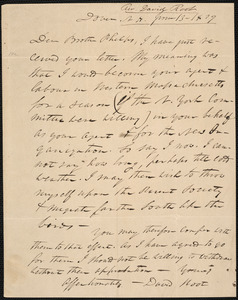 Rev. David Root
Dover N. H. June 13 - 1839
Dear Brother Phelps, I have just re-
ceived your letter. My meaning was
that I would become your agent &
labour in Western Massachusetts
for a season (if the N. York Com-
mittee were willing) in your behalf
as your agent for the New Or-
ganization. So say I now. I can-
not say how long, perhaps till cold
weather. I may then wish to throw
myself upon the Parent Society
& migrate farther South like the
birds -
You may therefore confer with
them to that effect. As I have agreed to go
for them I should not be willing to withdraw
without their approbation - Yours
Affectionately - David Root